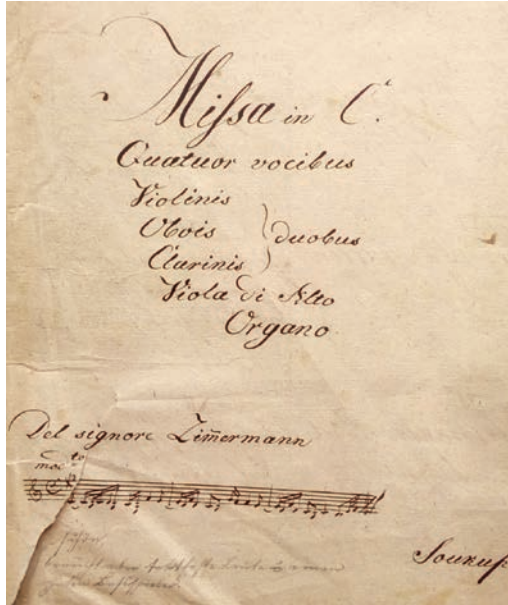 Missa in C.
Quatuor vocibus
Violinis
Obois
duobus
Clarinis
Viola di Alto
Organo.
Del signore Zim̄ermann
mod.to
Soukup